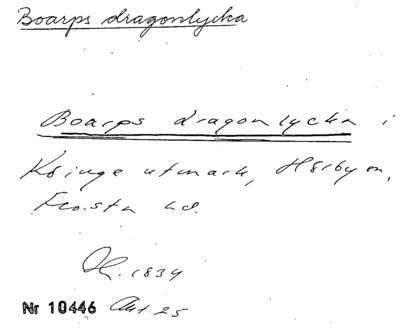 Boarps dragonlycka
Boarps dragonlycka i
Ksinge utmark, Hörby sn,
Frosta hd.
1834
Nr 10446 Akt 25